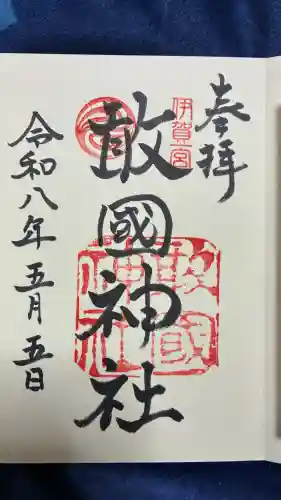 奉拝
伊賀一宮
敢國神社
敢國神社
令和八年五月五日